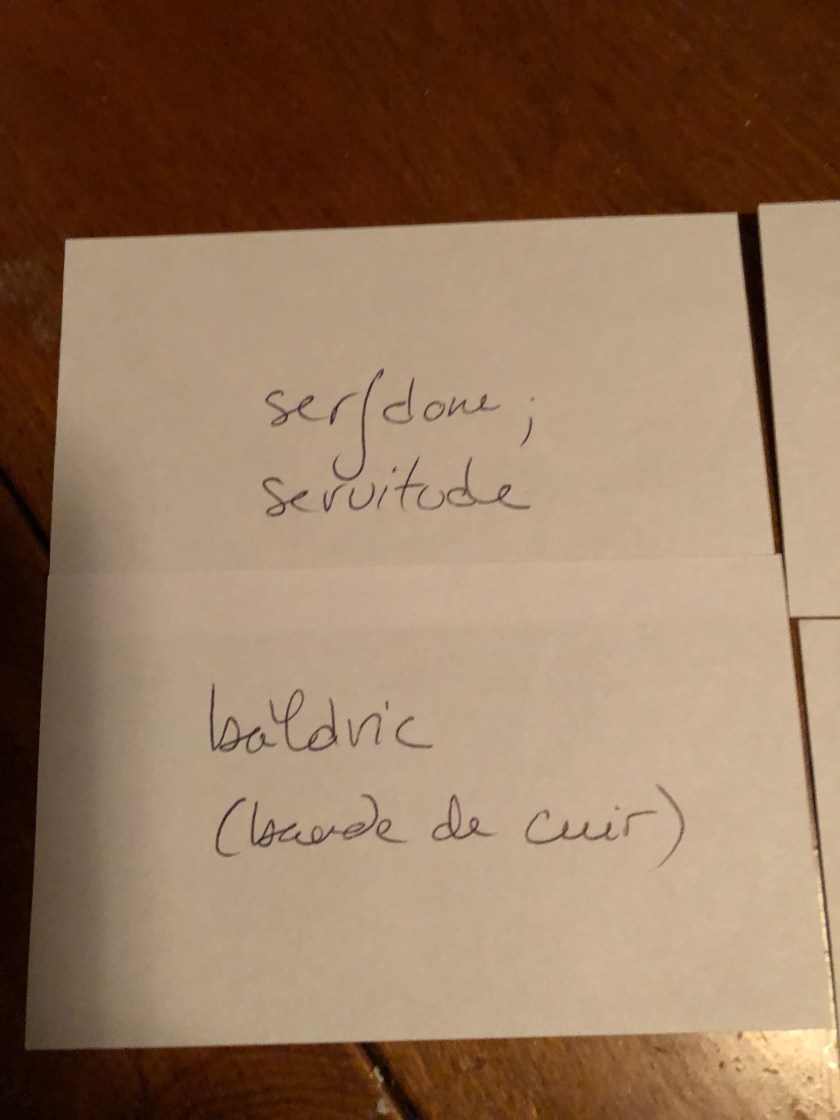 serfdom ;
servitude
baldric
(bande de cuir)